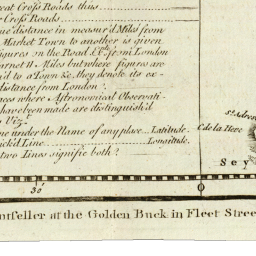 eat Cross Roads thus
Cross Roads
ue distance in measur'd Miles from
Market Town to another is given
figures on the Road
from London
Miles but where figures are
'd to a Town &c. they denote its ex-
distance from London
ces where Astronomical Observati-
have been made are distinguish'd
Viz.
ne under the Name of any place... Latitude.
ick'd Line Longitude.
two Lines signifie both
C de la Heve
Sey
30'
0
ntseller at the Golden Buck in Fleet Stree